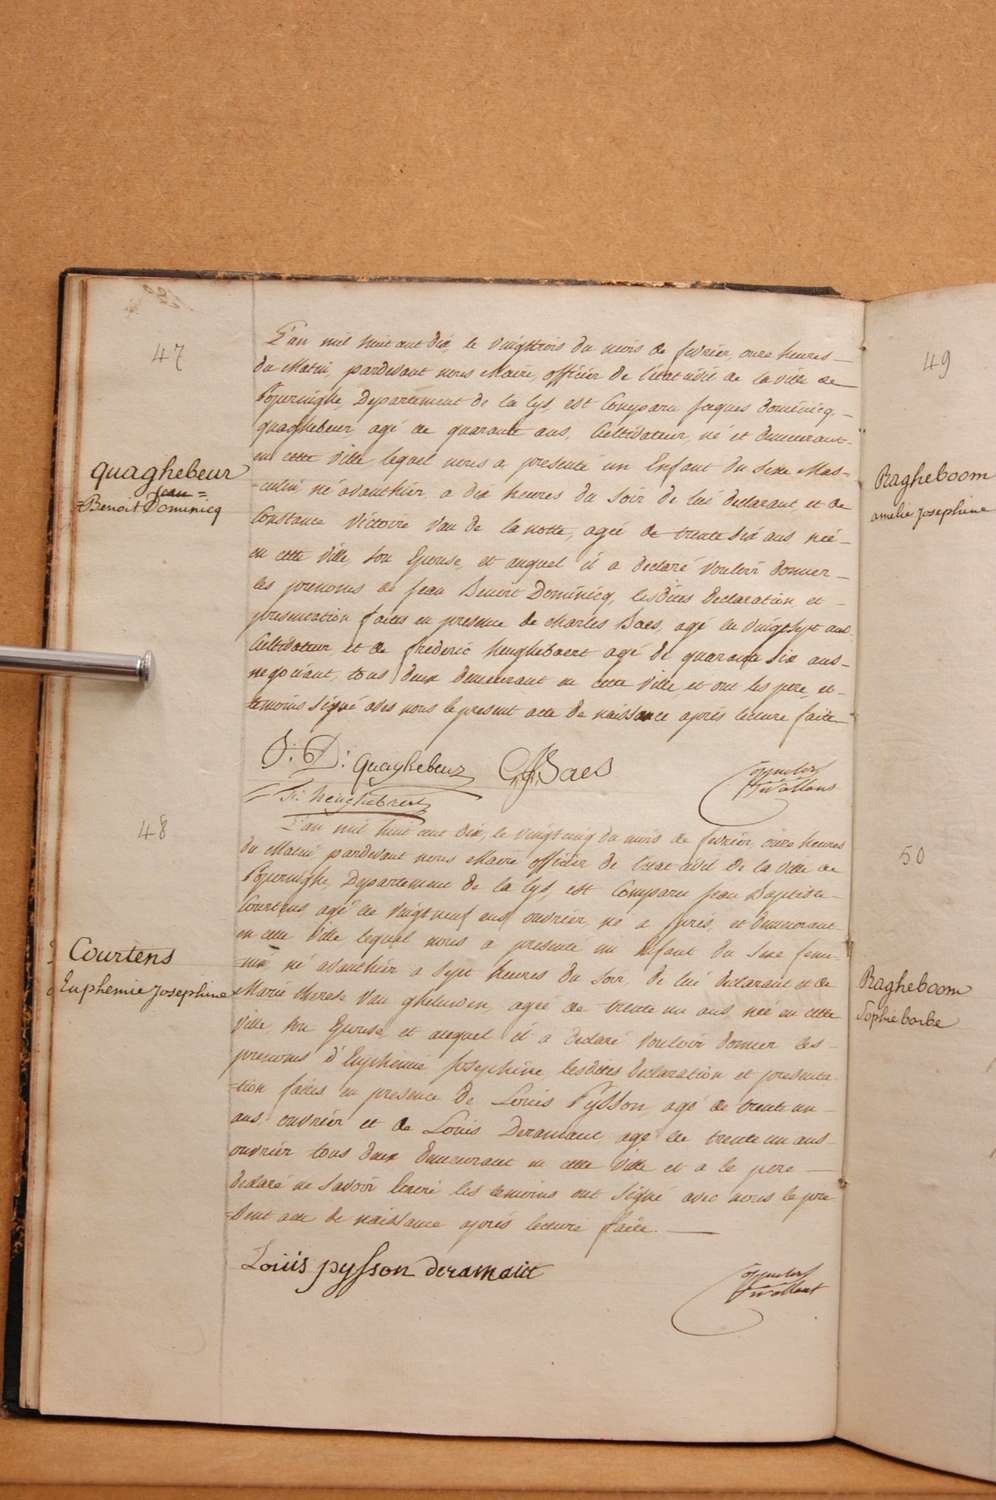 47
Quaghebeur
Jean =
= Benoit Dominicq
L'an mil huit cent dix, le vingttrois du mois de fevrier, onze heures
du Matin, pardevant nous Maire, officier de l'état civil de la ville de
Poperinghe, Département de la Lys, est Comparu Jacques Dominicq
quaghebeur agé de quarante ans, Cultivateur, né et demeurant
en cette Ville, lequel nous a presenté un Enfant du Sexe Mas-
-culin né avanthier, a dix heures du Soir de lui declarant et de
Constance Victoire Van de la notte, agée de trente six ans née
en cette Ville son Epouse, et auquel il a declaré vouloir donner
les prenoms de Jean Benoit Dominicq, lesdites declaration et
presentation faites en presence de charles Baes, agé de vingtsept ans
Cultivateur et de frederic heughebaert agé de quarante six ans
negociant, tous deux demeurant en cette Ville, et ont les pere et
temoins signé avec nous le present acte de naissance après lecture faite
J: D: quaghebeur C: J: Baes
F: heughebaert
48
Courtens
Euphemie Josephine
L'an mil huit cent dix, le vingtcinq du mois de fevrier, onze heures
du Matin pardevant nous Maire officier de l'état civil de la ville de
Poperinghe, Departement de la Lys, est Comparu Jean Baptiste
Courtens agé de vingtneuf ans ouvrier né a furnes, et demeurant
en cette Ville lequel nous a presenté un enfant du Sexe femi-
-nin né avanthier a sept heures du Soir, de lui declarant et de
Marie therese Van gheluwen, agée de trente un ans, née en cette
Ville, son Epouse, et auquel il a declaré vouloir donner les
prenoms d'Euphemie Josephine lesdites declaration et presenta
-tion faites en presence de Louis Pysson, agé de trente un
ans ouvrier et de Louis Deramaut agé de trente un ans
ouvrier tous deux demeurant en cette Ville et a le pere
declaré ne savoir Ecrire les temoins ont signé avec nous le pre
-sent acte de naissance après lecture faite.
Louis pysson deramaut
49
Ragheboom
amelie Josephine
50
Ragheboom
Sophie barbe